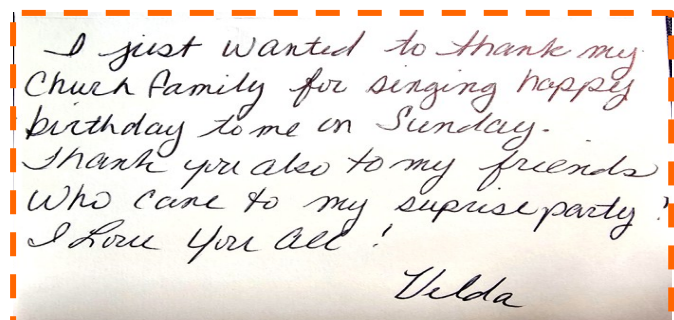 I just wanted to thank my
Church family for singing happy
birthday to me on Sunday.
Thank you also to my friends
who came to my suprise party!
I Love You all!
Velda